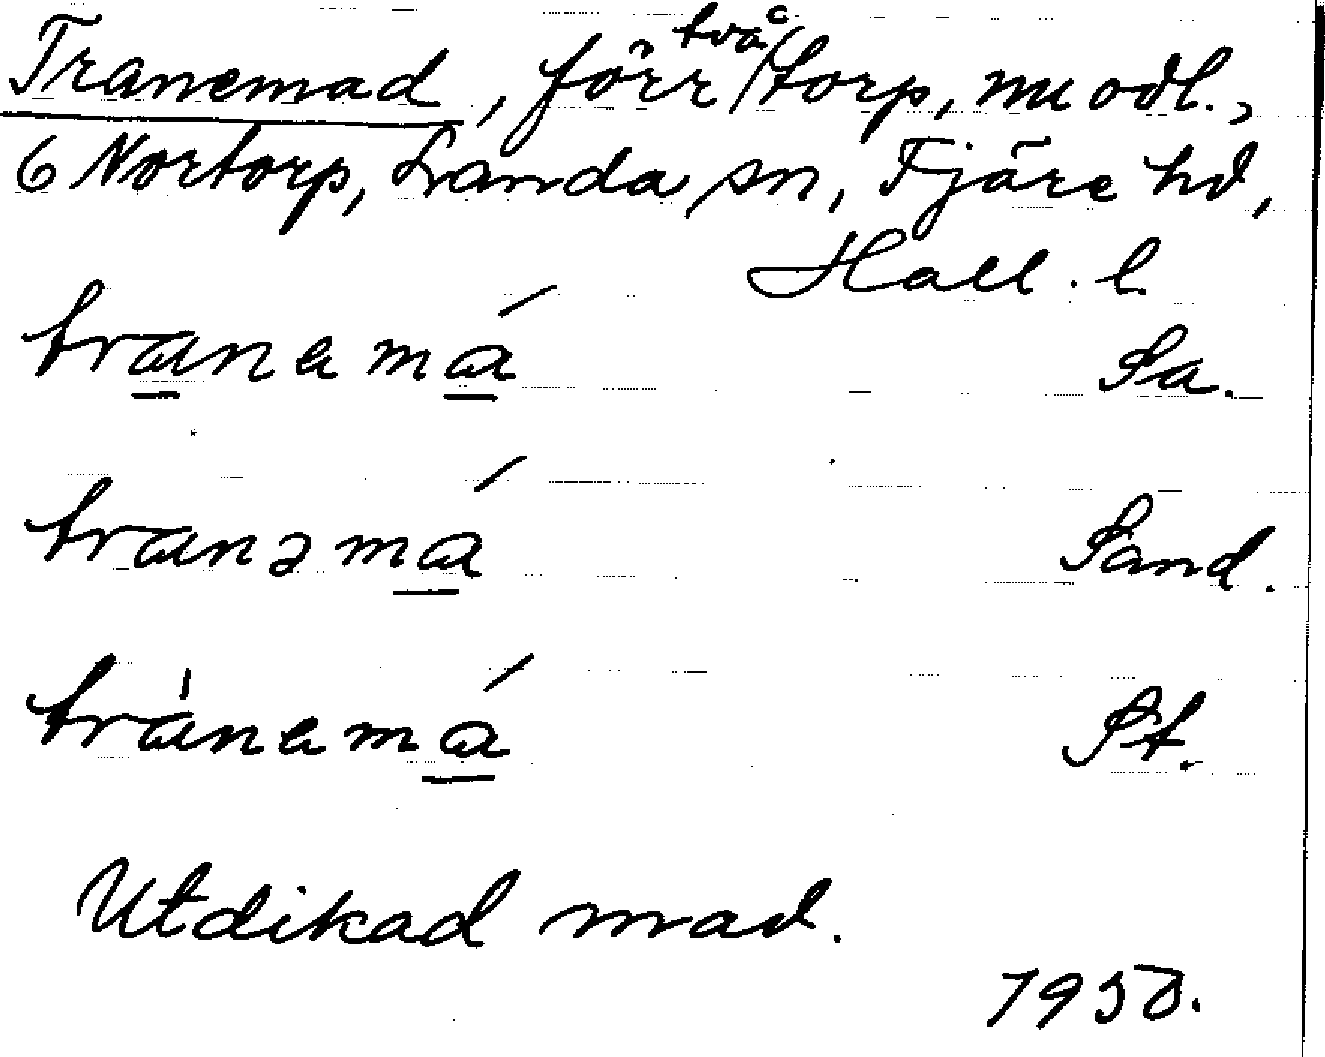 Tranemad, förr två torp, nu odl.,
6 Nortorp, Landa sn, Fjäre hd,
Hall. l.
tranamá Sa.
tranəmá Sand.
trànamá St.
Utdikad mad.
1930.